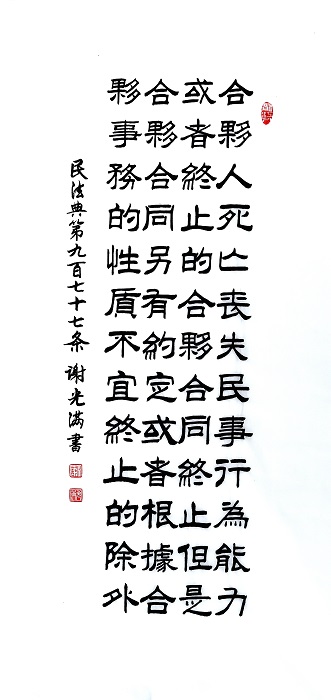 合夥人死亡喪失民事行為能力
或者終止的合夥合同終止但是
合夥合同另有約定或者根據合
夥事務的性质不宜終止的除外
民法典第九百七十七条 谢光满書